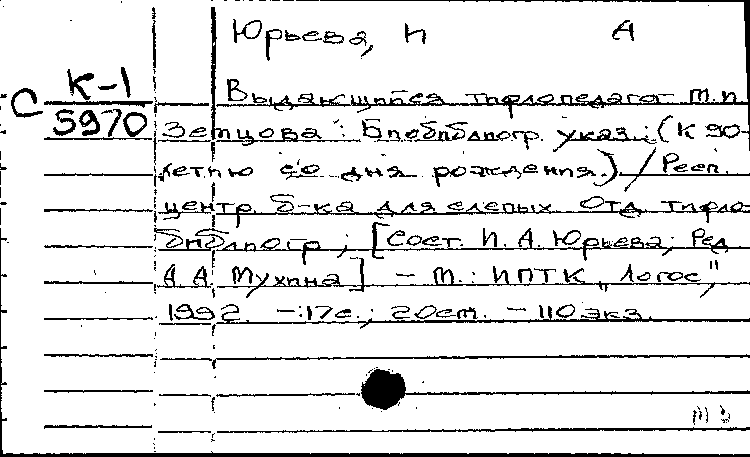 Юрьева, И А
С К-1
5970
Выдающийся тифлопедагог М.И
Земцова: Библиогр. указ.: (К 90-
летию со дня рождения.) / Респ.
центр. б-ка для слепых. Отд тифло
библиогр; [Сост. И. А. Юрьева; Ред
А. А. Мухина] - М.: ИПТК „Логос",
1992. -:17с.; 20см. - 110 экз.